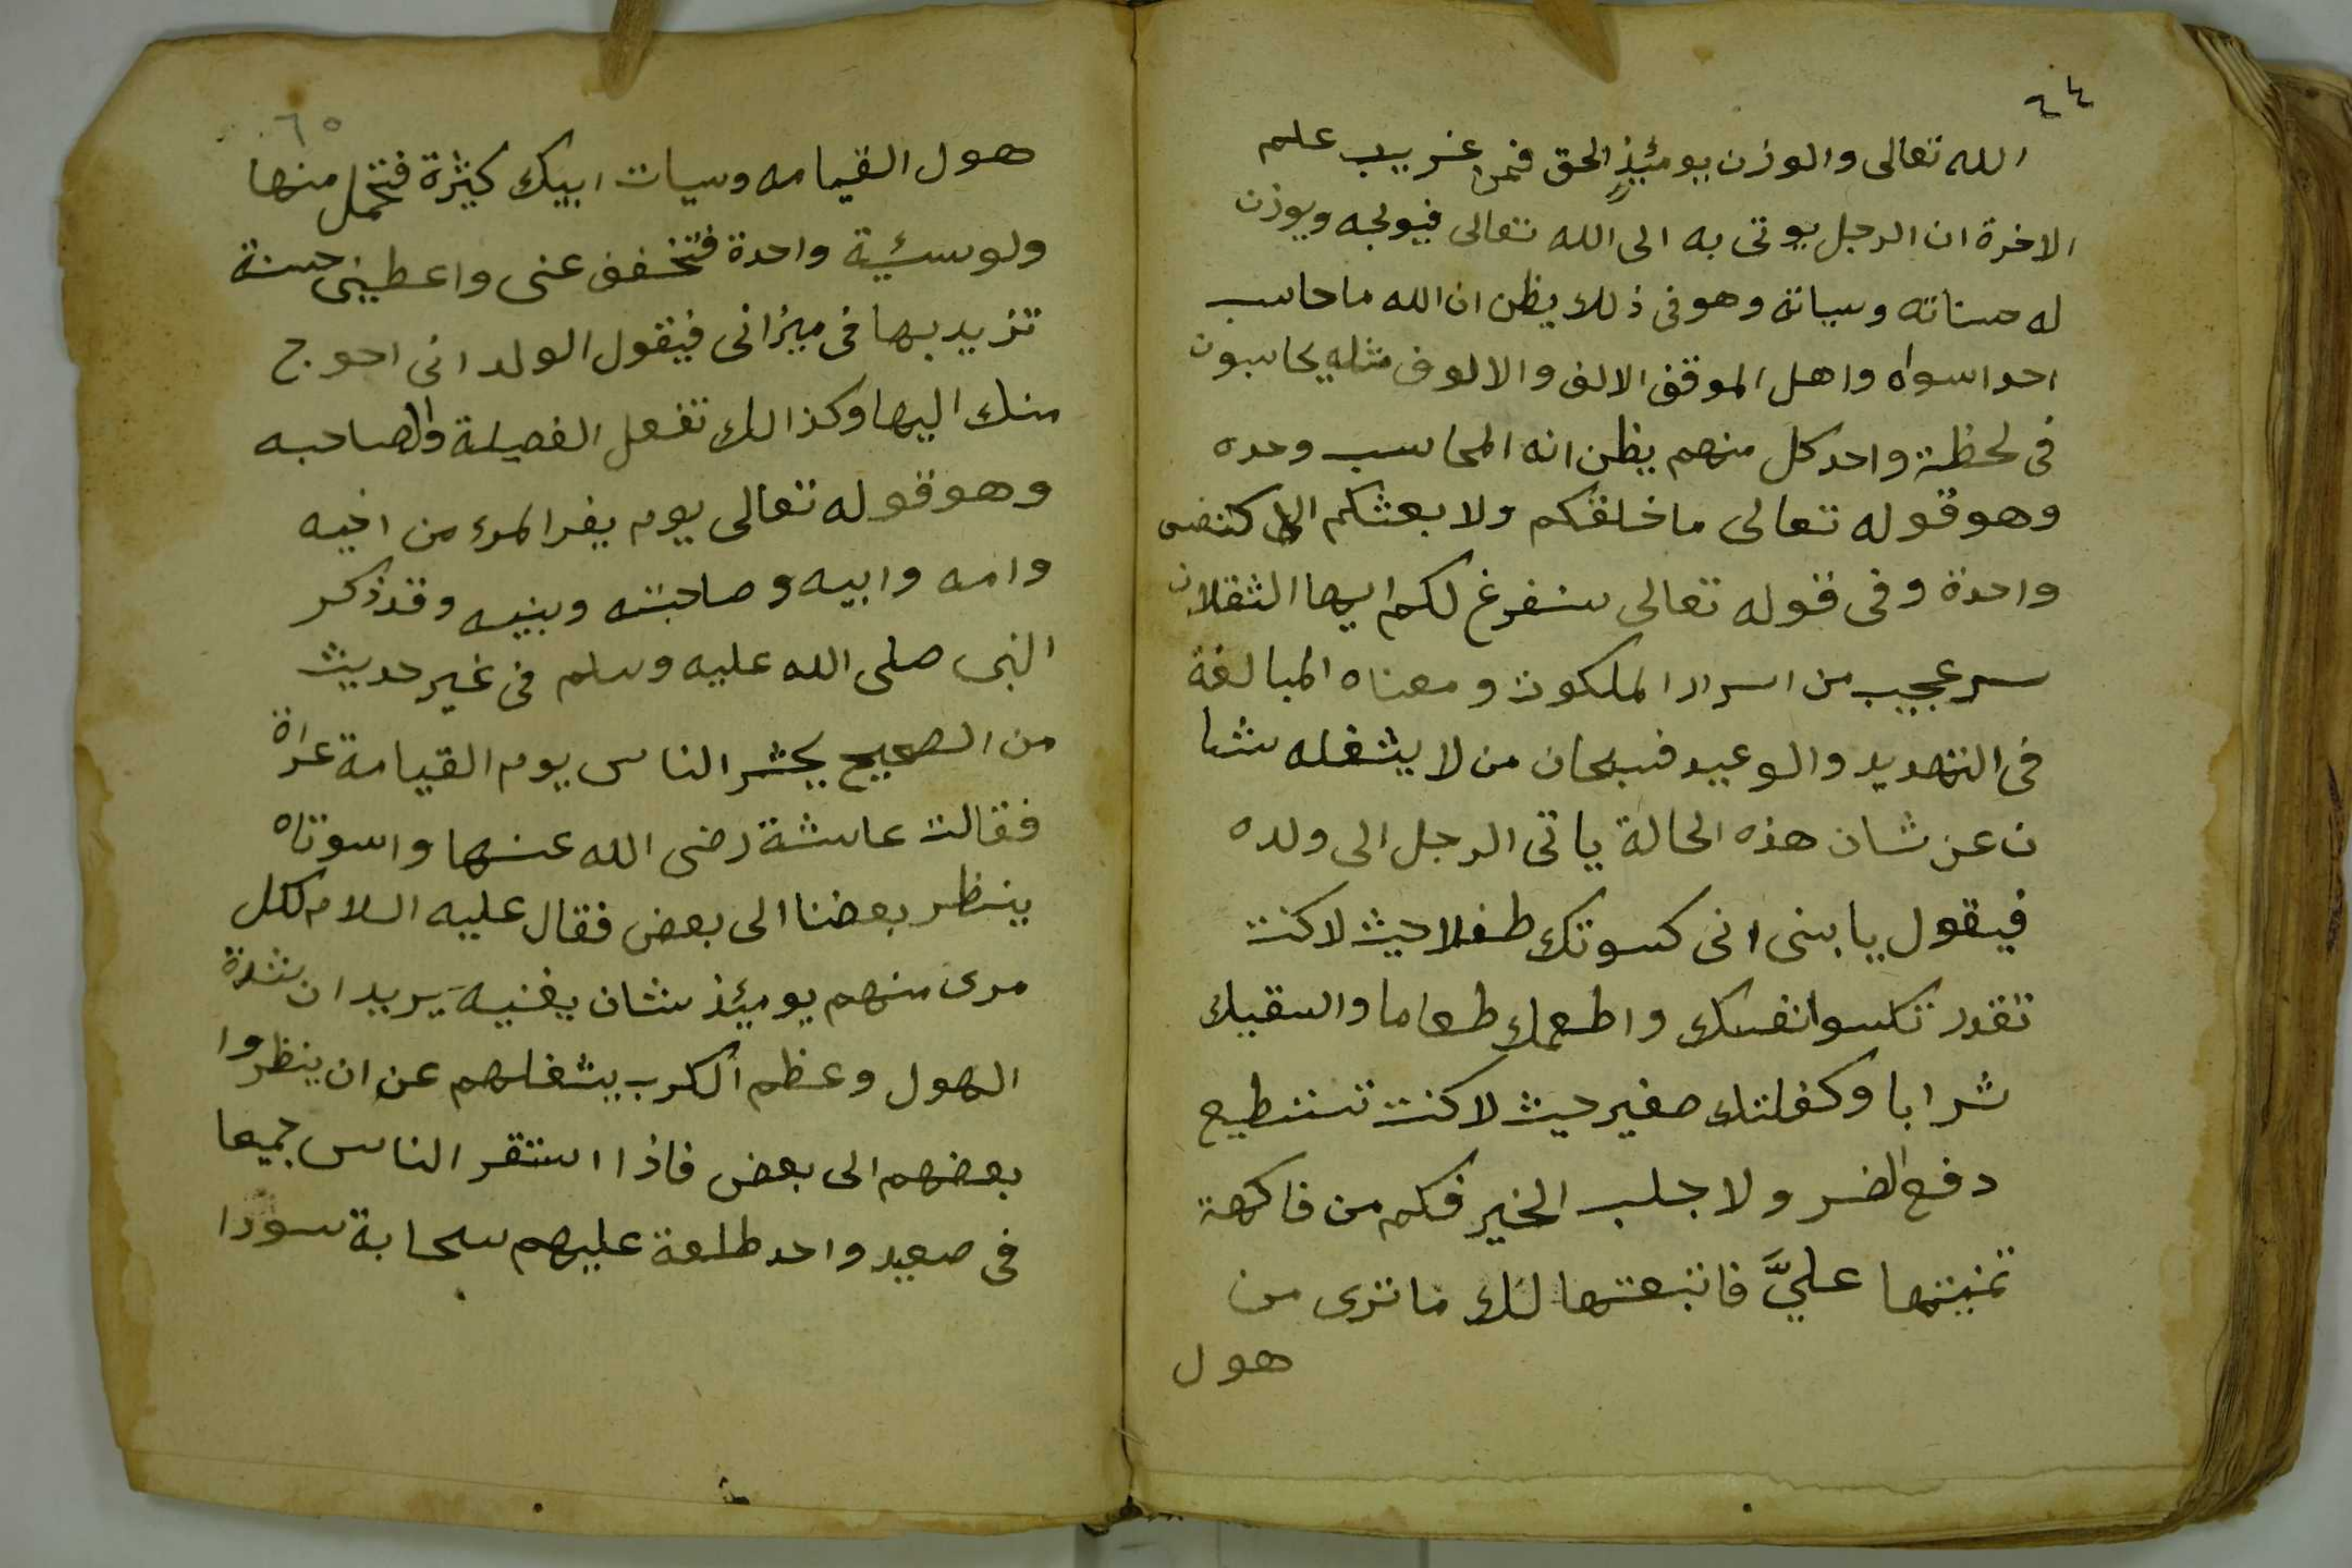 ٦٤
الله تعالى والوزن يومئذ الحق فمن غريب علم
الاخرة ان الرجل يوتى به الى الله تعالى فيولجه ويوزن
له حسناته وسياته وهو فى ذلك يظن ان الله ما حاسب
احدا سواه واهل الموقف الالف والالوف مثله يحاسبون
فى لحظة واحد كل منهم يظن انه المحاسب وحده
وهو قوله تعالى ما خلقكم ولا بعثكم الا كنفس
واحدة وفى قوله تعالى سنفرغ لكم ايها الثقلان
سر عجيب من اسرار الملكوت ومعناه المبالغة
فى التهديد والوعيد فسبحان من لا يشغله شا
ن عن شان هذه الحالة ياتى الرجل الى ولده
فيقول يا بنى انى كسوتك طفلا حيث لا كنت
تقدر تكسوا نفسك واطعمك طعاما واسقيك
شرابا وكفلتك صغير حيث لا كنت تستطيع
دفع الضر ولا جلب الخير فكم من فاكهة
تمنيتها عليَّ فاتبعتها لك ما ترى من
هول
٦٥
هول القيامه وسيات ابيك كثيرة فتحمل منها
ولو سئية واحدة فتخفف عنى واعطينى حسنة
تزيد بها فى ميزانى فيقول الولد انى احوج
منك اليها وكذالك تفعل الفصيلة والصاحبه
وهو قوله تعالى يوم يفر المرء من اخيه
وامه وابيه وصاحبته وبنيه وقد ذكر
النبى صلى الله عليه وسلم فى غير حديث
من الصحيح يحشر الناس يوم القيامة عراة
فقالت عاشة رضى الله عنها واسوتاه
ينظر بعضنا الى بعض فقال عليه السلام لكل
مرى منهم يومئذ شان يغنيه يريد ان شدة
الهول وعظم الكرب يشغلهم عن ان ينظروا
بعضهم الى بعض فاذا استقر الناس جميعا
فى صعيد واحد طلعة عليهم سحابة سودا